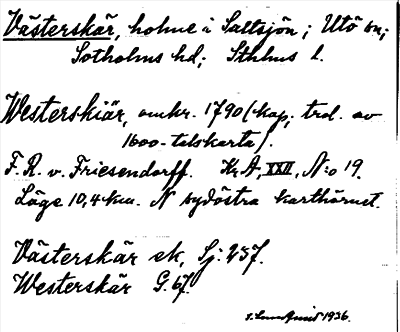 Västerskär, holme i Saltsjön; Utö sn;
Sotholms hd; Sthlms l.
Westerskiär, omkr. 1790 (kop. trol. av
1600-talskarta).
F. R. v. Friesendorff. Kr A, XXII, N:o 19.
Läge 10,4 km. N sydöstra karthörnet.
Västerskär ek, Sj: 257.
Westerskär G. 67.
1936.